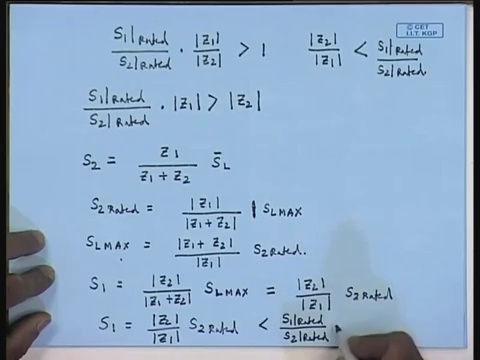 © CET
I.I.T. KGP
S1|Rated / S2|Rated · |Z1| / |Z2| > 1    |Z2| / |Z1| < S1|Rated / S2|Rated
S1|Rated / S2|Rated · |Z1| > |Z2|
S2 = Z1 / Z1 + Z2 S̄L
S2 Rated = |Z1| / |Z1 + Z2| | SLMAX
SLMAX = |Z1 + Z2| / |Z1| S2 Rated.
S1 = |Z2| / |Z1 + Z2| SLMAX = |Z2| / |Z1| S2 Rated
S1 = |Z2| / |Z1| S2 Rated < S1|Rated / S2|Rated